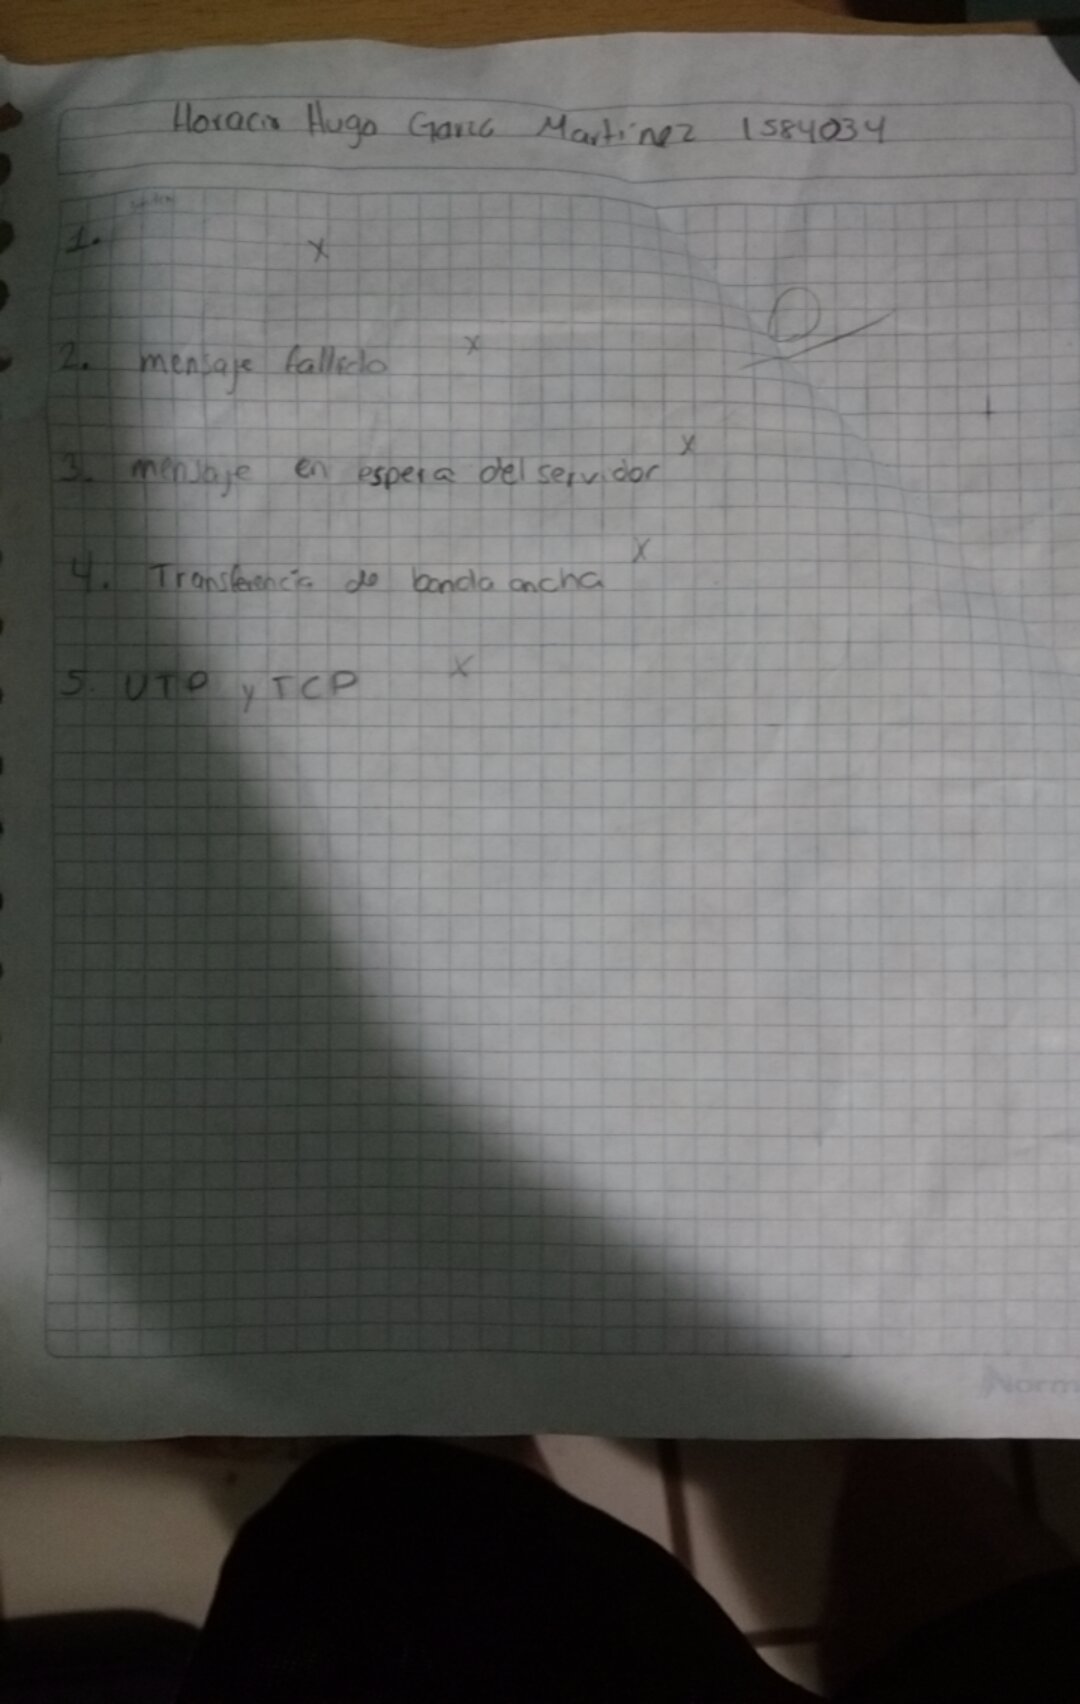 Horacio Hugo Garic Martinez 1584034
1. x
0
2. mensaje fallido x
3. mensaje en espera del servidor x
4. Transferencia de banda ancha x
5. UTP y TCP x
Norm